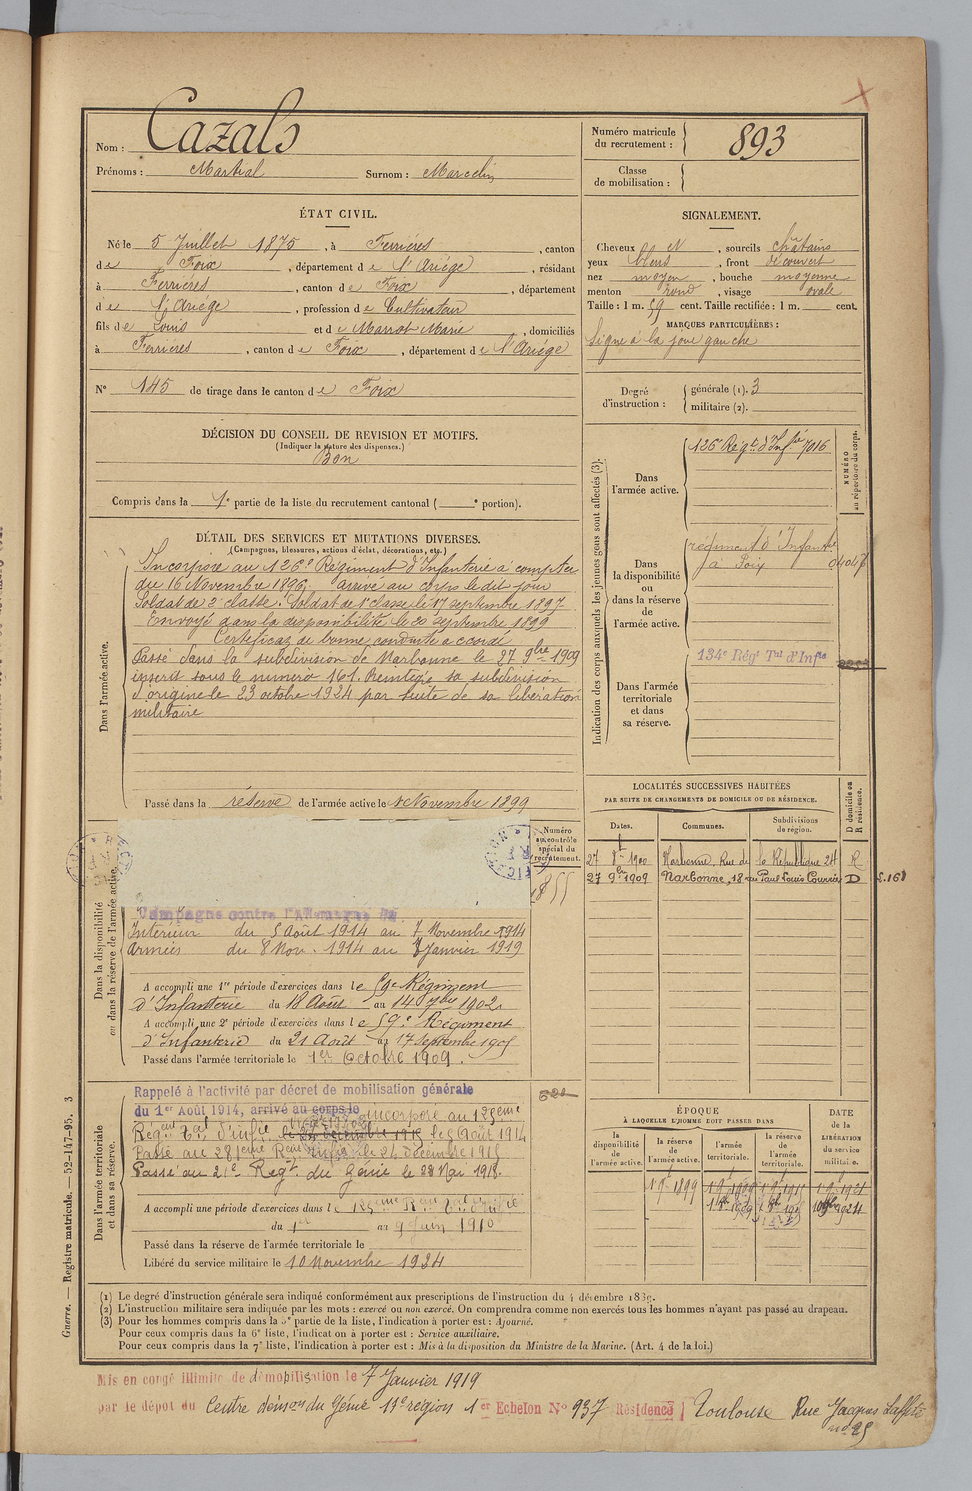 Nom : Cazals
Prénoms : Martial Surnom : Marcelin
Numéro matricule du recrutement : 893
Classe de mobilisation :
ÉTAT CIVIL.
Né le 5 Juillet 1875, à Ferrières, canton
de Foix, département de l'Ariége, résidant
à Ferrières, canton de Foix, département
de l'Ariége, profession de Cultivateur
fils de Louis et de Marrot Marie, domiciliés
à Ferrieres, canton de Foix, département de l'Ariége
N° 145 de tirage dans le canton de Foix
SIGNALEMENT.
Cheveux bl N, sourcils châtains
yeux bleus, front découvert
nez moyen, bouche moyenne
menton rond, visage ovale
Taille : 1 m. 59 cent. Taille rectifiée : 1 m. cent.
MARQUES PARTICULIÈRES :
Signe à la joue gauche
Degré d'instruction : générale (1). 3
militaire (2).
DÉCISION DU CONSEIL DE REVISION ET MOTIFS.
(Indiquer la nature des dispenses.)
Bon
Compris dans la 1e partie de la liste du recrutement cantonal ( e portion).
DÉTAIL DES SERVICES ET MUTATIONS DIVERSES.
(Campagnes, blessures, actions d'éclat, décorations, etc.)
Dans l'armée active.
Incorporé au 126e Régiment d'Infanterie à compter
du 16 Novembre 1896, arrivé au corps le dit jour
Soldat de 2e classe. Soldat de 1e classe le 17 septembre 1897
Envoyé dans la disponibilité le 20 septembre 1899
Certificat de bonne conduite accordé
Passé dans la subdivision de Narbonne le 27 9bre 1909
inscrit sous le numéro 161. Reintegré sa subdivision
d'origine le 23 octobre 1924 par suite de sa libération
militaire
Passé dans la réserve de l'armée active le 1 Novembre 1899
Indication des corps auxquels les jeunes gens sont affectés (3).
NUMÉRO au répertoire du corps.
Dans l'armée active.
126e Régt. d'Infie 7016
Dans la disponibilité ou dans la réserve de l'armée active.
regiment d'Infanterie
à Foix
Dans l'armée territoriale et dans sa réserve.
134e Régt Tal d'Infie
LOCALITÉS SUCCESSIVES HABITÉES
PAR SUITE DE CHANGEMENTS DE DOMICILE OU DE RÉSIDENCE.
Dates. Communes. Subdivisions de région. D domicile ou R résidence.
27 8bre 1900 Narbonne, Rue de la République 24 R
27 9bre 1909 Narbonne, 18 rue Paul Louis Courrier D S.161
Dans la disponibilité ou dans la réserve de l'armée active.
Numéro au contrôle spécial du recrutement.
1855
Campagne contre l'Allemagne
Intérieur du 5 Août 1914 au 7 Novembre 1914
Armées du 8 Nov. 1914 au 7 Janvier 1919
A accompli une 1re période d'exercices dans le 59e Régiment
d'Infanterie du 18 Août au 14 7bre 1902
A accompli une 2e période d'exercices dans le 59e Régiment
d'Infanterie du 21 Août au 17 Septembre 1905
Passé dans l'armée territoriale le 1er Octobre 1909.
Dans l'armée territoriale et dans sa réserve.
Rappelé à l'activité par décret de mobilisation générale
du 1er Août 1914, arrivé au corps le incorporé au 125eme
Régent Tal d'infie le 24 décembre 1915 le 5 Août 1914
Passé au 28 le 24 décembre 1915
Passé au 21e Regt. du Génie le 28 Mai 1918.
A accompli une période d'exercices dans le
du 1er au 9 Juin 1910
Passé dans la réserve de l'armée territoriale le
Libéré du service militaire le 10 Novembre 1924
ÉPOQUE
À LAQUELLE L'HOMME DOIT PASSER DANS
la disponibilité de l'armée active. la réserve de l'armée active. l'armée territoriale. la réserve de l'armée territoriale.
DATE de la LIBÉRATION du service militaire.
1 9bre 1899
(1) Le degré d'instruction générale sera indiqué conformément aux prescriptions de l'instruction du 4 décembre 1889.
(2) L'instruction militaire sera indiquée par les mots : exercé ou non exercé. On comprendra comme non exercés tous les hommes n'ayant pas passé au drapeau.
(3) Pour les hommes compris dans la 5e partie de la liste, l'indication à porter est : Ajourné.
Pour ceux compris dans la 6e liste, l'indication à porter est : Service auxiliaire.
Pour ceux compris dans la 7e liste, l'indication à porter est : Mis à la disposition du Ministre de la Marine. (Art. 4 de la loi.)
Guerre. — Registre matricule. — 52-147-95. 3
Mis en congé illimité de démobilisation le 7 Janvier 1919
par le dépot du Centre démob du Génie 17e région 1er Echelon N° 937 Résidence Toulouse Rue Jacques Laffitte
no 25